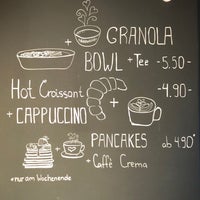 GRANOLA
BOWL + Tee - 5.50 -
Hot Croissant - 4.90 -
+ CAPPUCCINO
PANCAKES ab 4.90*
+ Caffè Crema
*nur am Wochenende